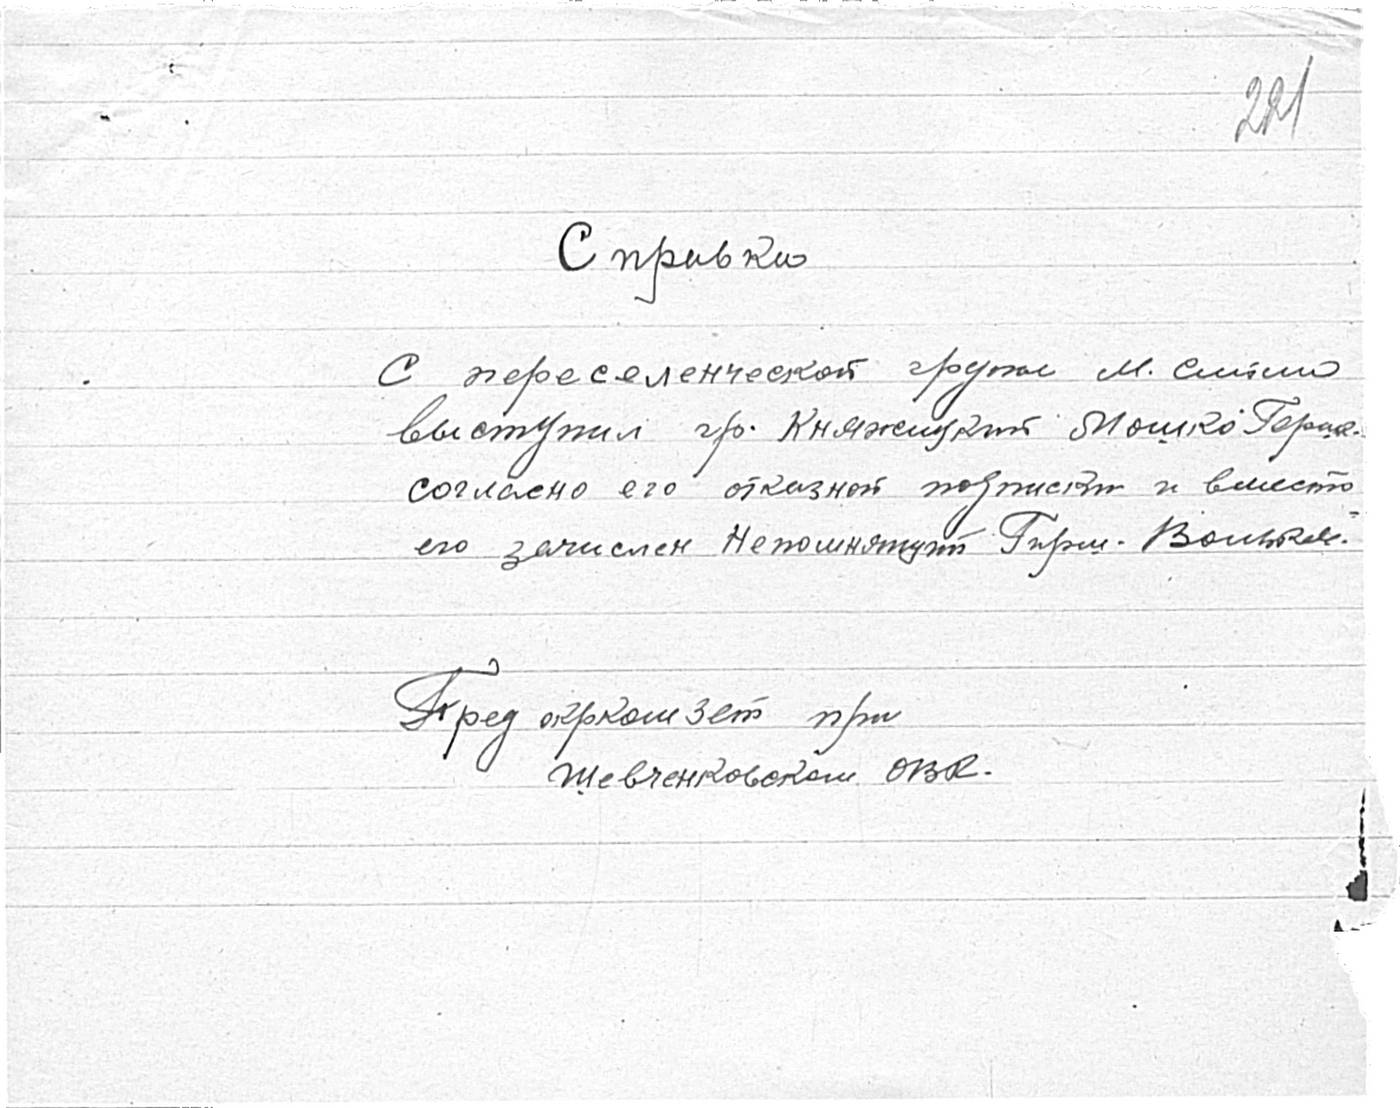 221
Справка
С переселенческой групы м. Смілы
выступил гр. Княжицкий Мошко Герш.
согласно его отказной подписки и вместо
его зачислен Непомнящий Герш. Вольков.
Пред окркомзет при
Шевченковском ОВК.